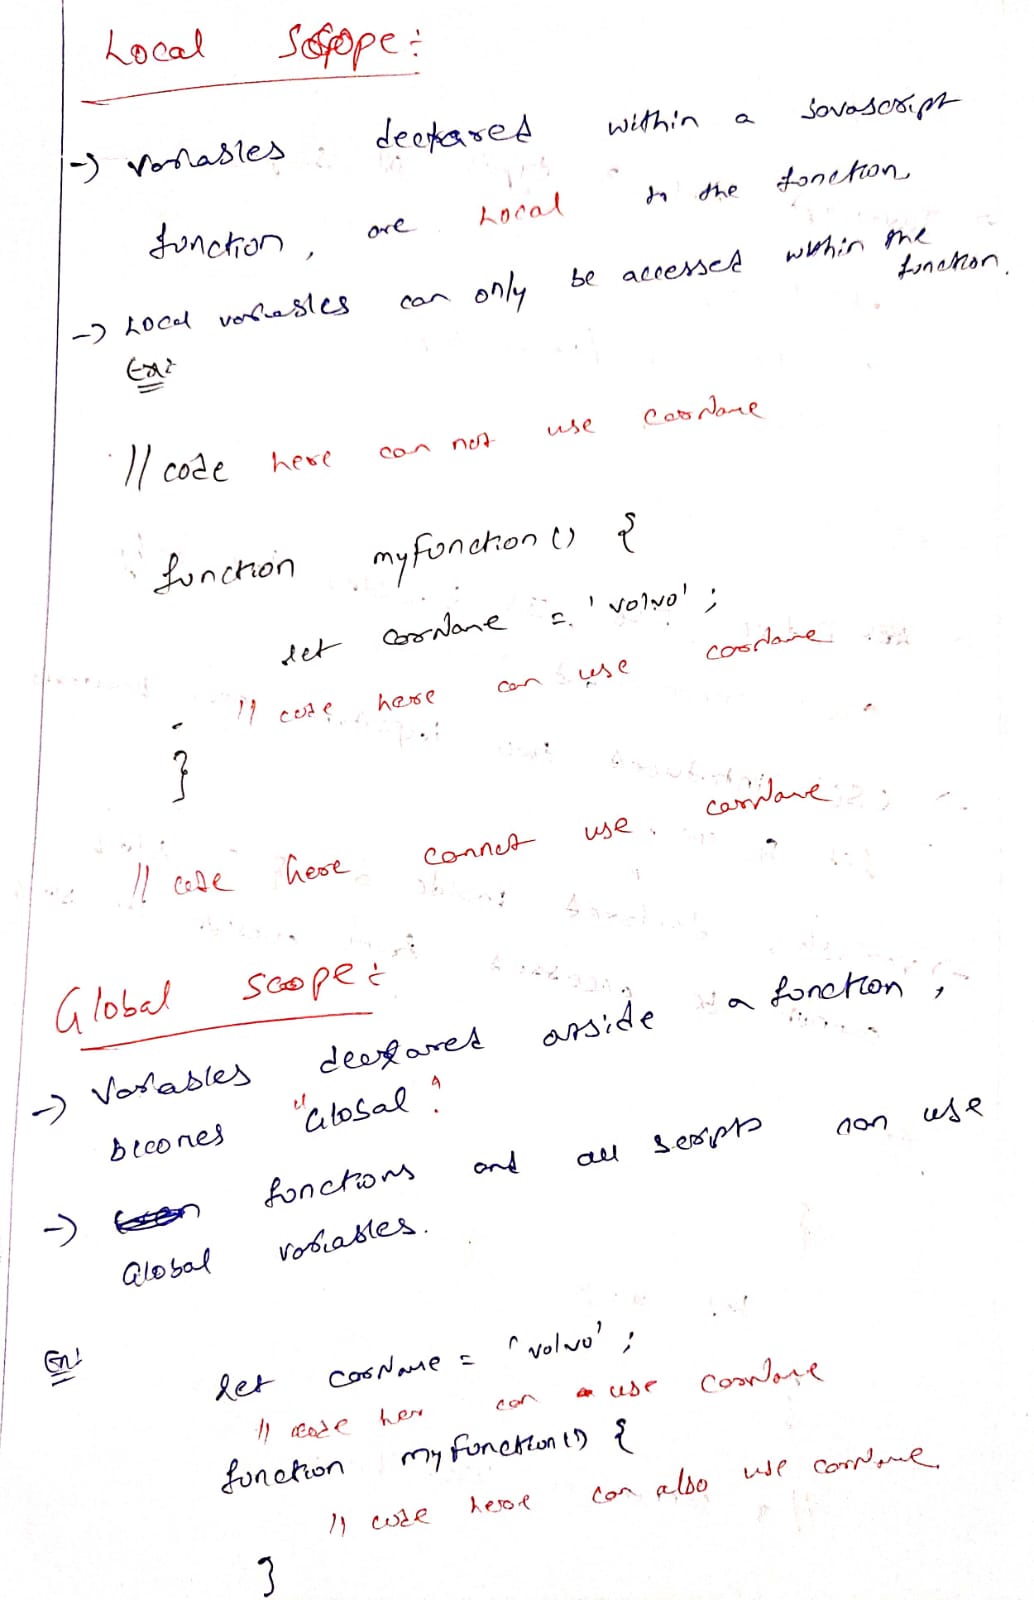 Local Scope:
-> Variables declared within a Javascript
function, are Local to the function,
-> Local variables can only be accessed within the
function.
Ex:
// code here can not use carName
function myFunction() {
let carName = 'volvo';
// code here can use carName
}
// code here cannot use carName
Global scope:
-> Variables declared outside a function,
becomes "Global"
-> functions and all scripts can use
Global variables.
Ex:
let carName = 'volvo';
// code here can use carName
function myFunction() {
// code here can also use carName
}